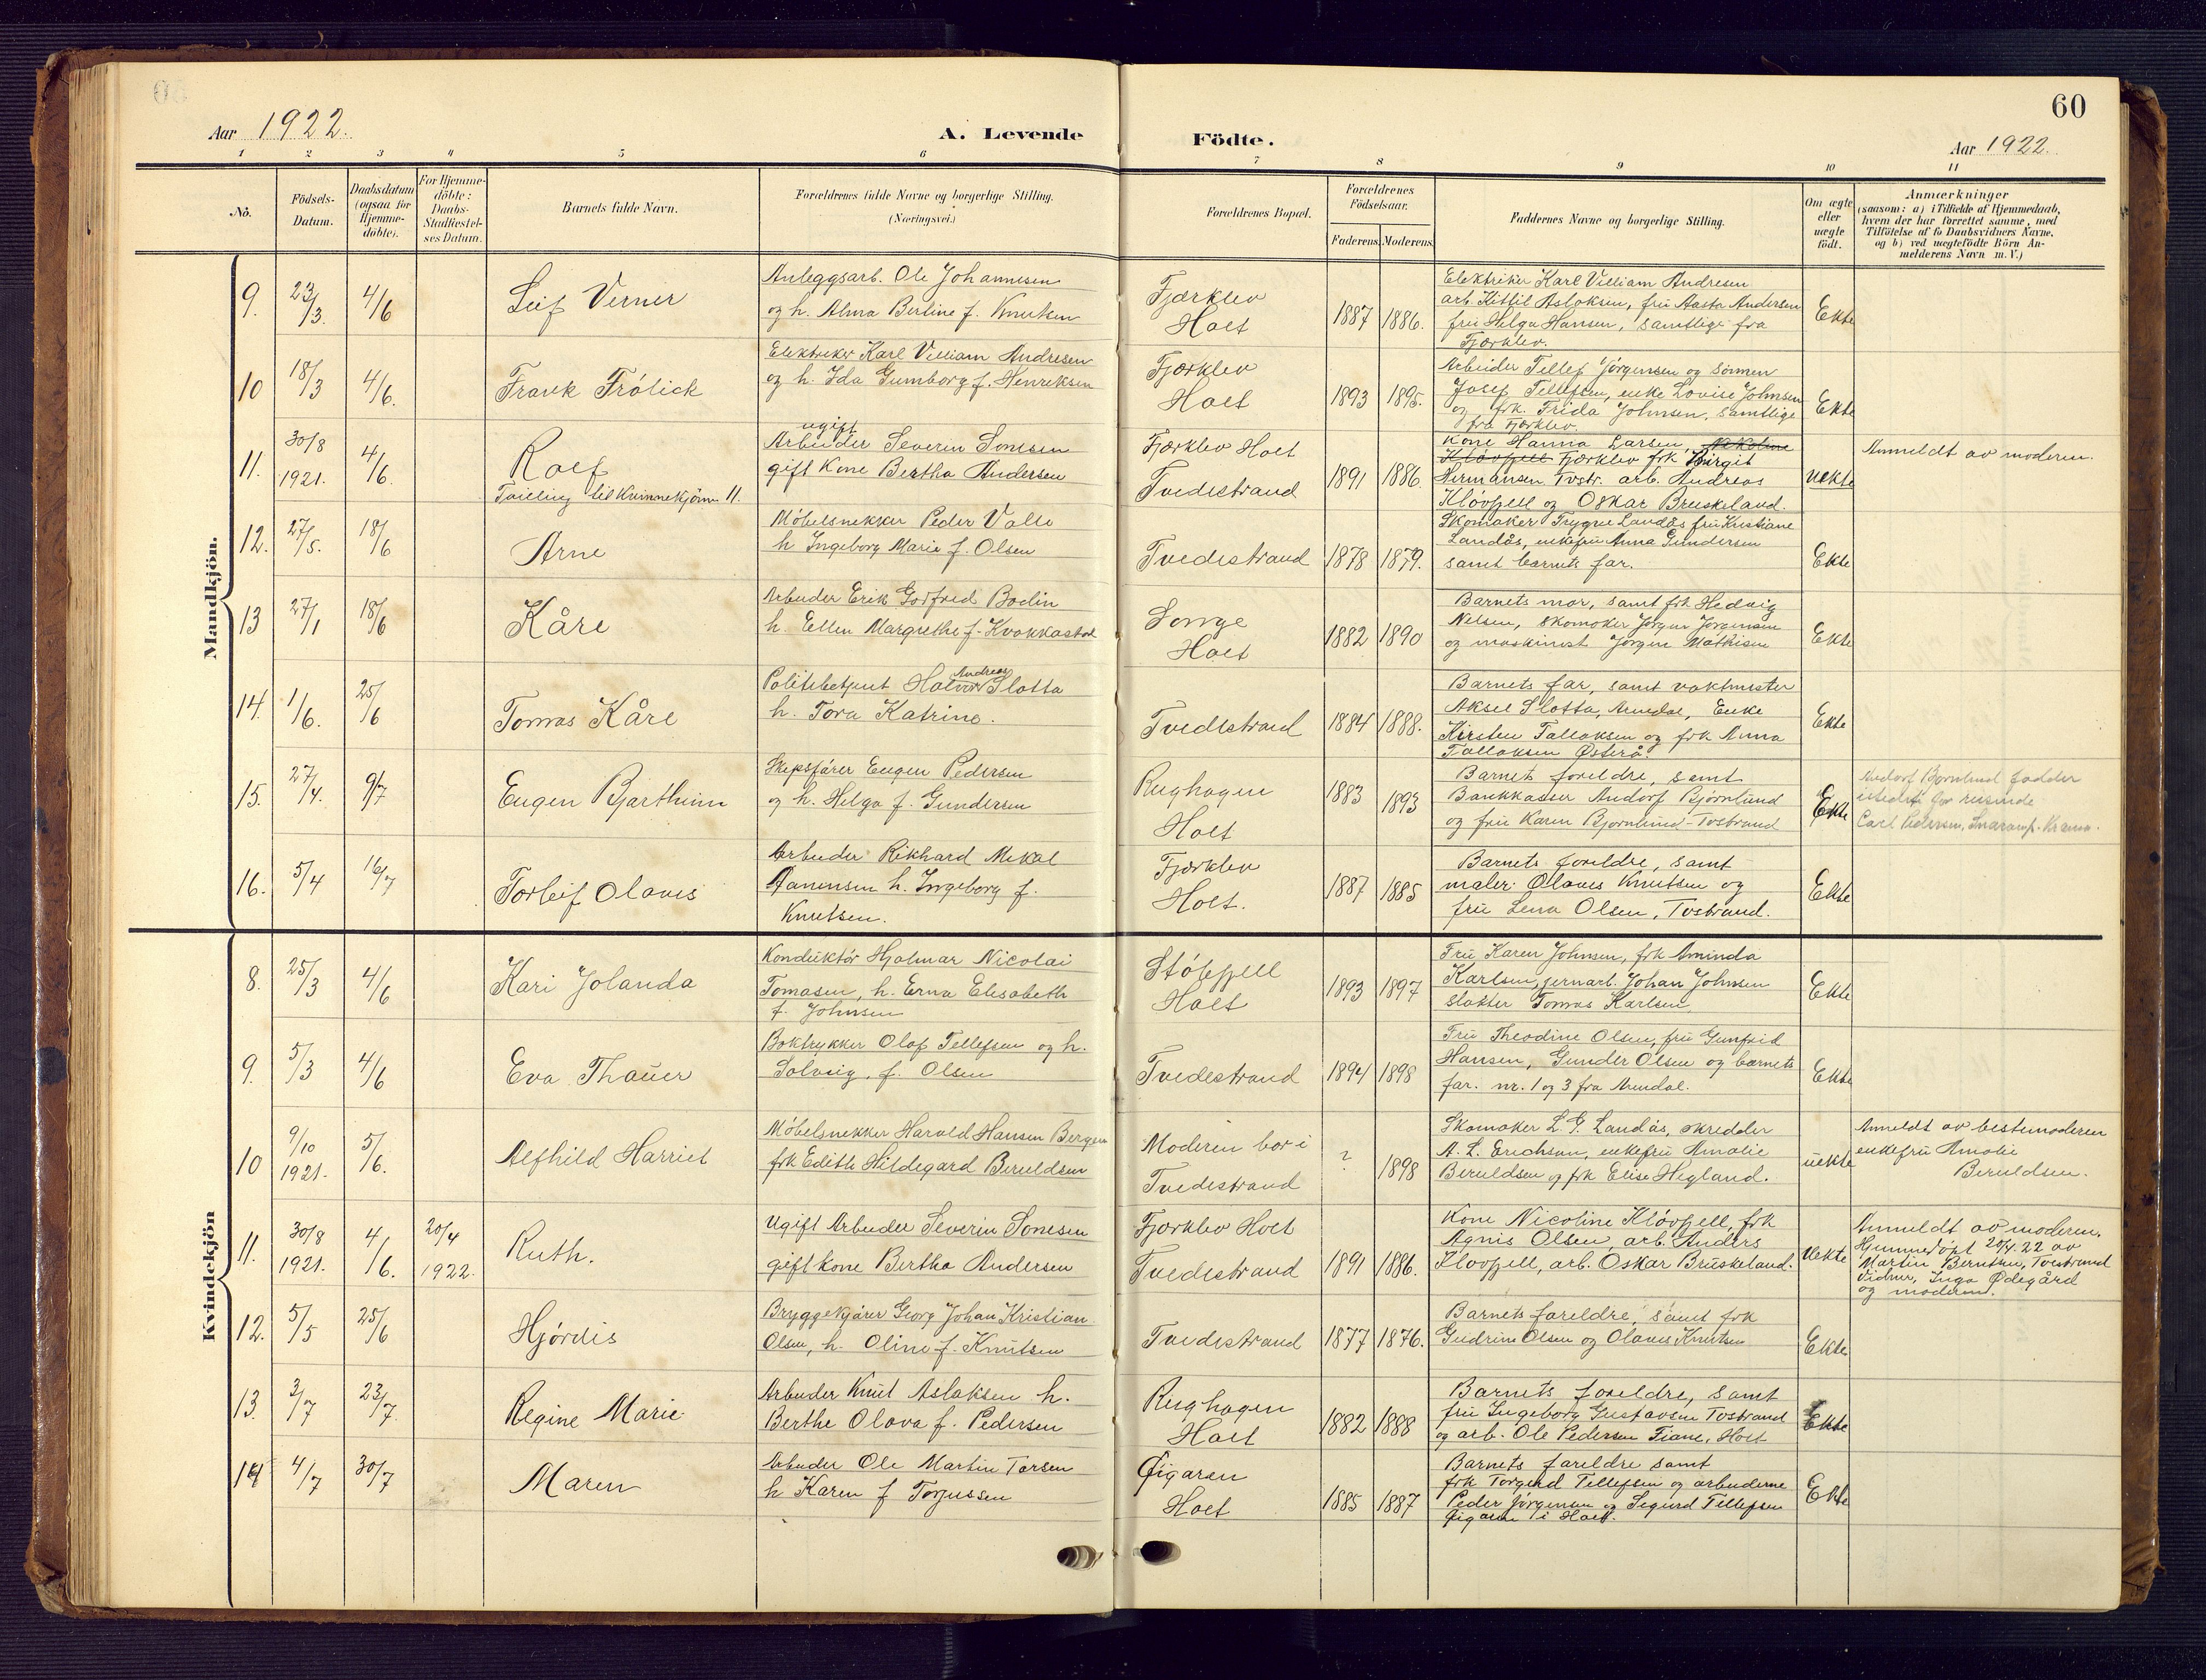 60
Aar 1922.
A. Levende Födte.
Aar 1922.
1 2 3 4 5 6 7 8 9 10 11
No.
Födsels-Datum.
Daabsdatum (ogsaa for Hjemme-döbte).
For Hjemme-döbte: Daabs-Stadfæstel-ses Datum.
Barnets fulde Navn.
Forældrenes fulde Navne og borgerlige Stilling.
(Næringsvei.)
Forældrenes Bopæl.
Forældrenes Födselsaar.
Faderens. Moderens.
Faddernes Navne og borgerlige Stilling.
Om ægte eller uægte födt.
Anmærkninger
(saasom: a) i Tilfælde af Hjemmedaab,
hvem der har forrettet samme, med
Tilföielse af to Daabsvidners Navne.
og b) ved uægtefödte Börn An-
melderens Navn m. V.)
Mandkjön.
9. 23/3. 4/6 Leif Verner
Anleggsarb. Ole Johannesen
og h. Alma Berline f. Knutsen
Fjærklev
Holt
1887 1886.
Elektriker Karl Villiam Andresen
arb. Kittil Aslaksen, fru Aasta Andersen
fru Helga Hansen, samtlige fra
Fjærklev.
Ekte
10 18/3 4/6. Frank Frölick
Elektriker Karl Villiam Andresen
og h. Ida Gumborg f. Henriksen
Fjærklev
Holt
1893 1895.
Arbeider Tellef Jörgensen og sönnen
Josef Tellefsen, enke Lovise Johnsen
og frk. Frida Johnsen, samtlige
fra Fjærklev.
Ekte
11. 30/8 1921. 4/6. Rolf
Tvilling til Kvinnekjönn 11.
ugift
Arbeider Severin Sonesen
gift Kone Bertha Andersen
Fjærklev Holt
Tvedestrand
1891 1886.
Kone Hanna Larsen, Nikoline
Klövfjell Fjærklev frk Birgit
Hermansen Tvstr. arb. Andreas
Klövfjell og Oskar Bruskeland.
Uekte
Anmeldt av moderen.
12. 27/5. 18/6 Arne
Möbelsnekker Peder Valle
h. Ingeborg Marie f. Olsen
Tvedestrand
1878 1879.
Skomaker Trygve Landås fru Kristiane
Landås, enkefru Anna Gundersen
samt barnets far.
Ekte
13 27/1 18/6 Kåre
Arbeider Erik Gotfred Bodin
h. Ellen Margrethe f. Kvakkastad
Songe
Holt
1882 1890
Barnets mor, samt frk Hedvig
Nilsen, skomaker Jörgen Jörgensen
og maskinist Jörgen Mathisen
Ekte
14. 1/6. 25/6 Tomas Kåre
Andreas
Politibetjent Halvor Slotta
h. Tora Katrine.
Tvedestrand
1884 1888.
Barnets far, samt vaktmester
Aksel Slotta, Arendal, Enke
Kirsten Tallaksen og frk Anna
Tallaksen Østerå.
Ekte
15. 27/4. 9/7 Eugen Bjartheim
Skipsförer Eugen Pedersen
og h. Helga f. Gundersen
Rughagen
Holt
1883 1893
Barnets foreldre, samt
Bankkasser Andorf Björnlund
og fru Karen Björnlund - Tvstrand
Ekte
Andorf Bjørnlund fadder
istedet for reisende
Carl Pedersen,
16. 5/4 16/7 Torleif Olaves
Arbeider Rikhard Mikal
Aanensen h. Ingeborg f.
Knutsen.
Fjærklev
Holt.
1887 1885
Barnets foreldre, samt
maler Olaves Knutsen og
fru Lena Olsen, Tvstrand.
Ekte
Kvindekjön
8. 25/3 4/6 Kari Jolanda
Konduktör Hjalmar Nicolai
Tomasen, h. Erna Elisabeth
f. Johnsen
Stölfjell
Holt
1893 1897
Fru Karen Johnsen, frk Aminda
Karlsen, jernarb. Johan Johnsen
slakter Tomas Karlsen
Ekte
9. 5/3 4/6 Eva Thauer
Boktrykker Olaf Tellefsen og h.
Solveig, f. Olsen
Tvedestrand
1894 1898
Fru Theodine Olsen, fru Gunfrid
Hansen, Gunder Olsen og barnets
far. nr. 1 og 3 fra Arendal.
Ekte
10 9/10 1921. 5/6. Alfhild Harriet
Möbelsnekker Harald Hansen Bergen
frk Edith Hildegard Beruldsen
Moderen bor i
Tvedestrand
? 1898
Skomaker L. G. Landås, skredder
A. L. Erichsen, enkefru Amalie
Beruldsen og frk Elise Hegland.
uekte
Anmeldt av bestemoderen
enkefru Amalie
Beruldsen.
11. 30/8 1921. 4/6. 20/4 1922. Ruth.
Ugift Arbeider Severin Sonesen
gift kone Bertha Andersen
Fjærklev Holt
Tvedestrand
1891 1886.
Kone Nicoline Klövfjell, frk
Agnis Olsen, arb. Anders
Klovfjell, arb. Oskar Bruskeland.
Uekte
Anmeldt av moderen.
Hjemmedöpt 20/4.22 av
Martin Berntsen, Tvestrand
Vidner, Inga Ødegård
og moderen.
12. 5/5 25/6 Hjördis
Bryggekjörer Georg Johan Kristian
Olsen, h. Oline f. Knutsen
Tvedestrand
1877 1876.
Barnets foreldre, samt frk
Gudrun Olsen og Olaves Knutsen
Ekte
13. 3/7 23/7. Regine Marie
Arbeider Knut Aslaksen h.
Berthe Olava f. Pedersen
Rughagen
Holt
1882 1888
Barnets foreldre, samt
fru Ingeborg Gustavsen Tvstrand
og arb. Ole Pedersen Tiane, Holt
Ekte
14 4/7 30/7 Maren
Arbeider Ole Martin Tarsen
h Karen f Torjussen
Øigaren
Holt
1885 1887
Barnets foreldre samt
frk Torgerd Tellefsen og arbeiderne
Peder Jörgensen og Sigurd Tellefsen
Øigaren i Holt.
Ekte